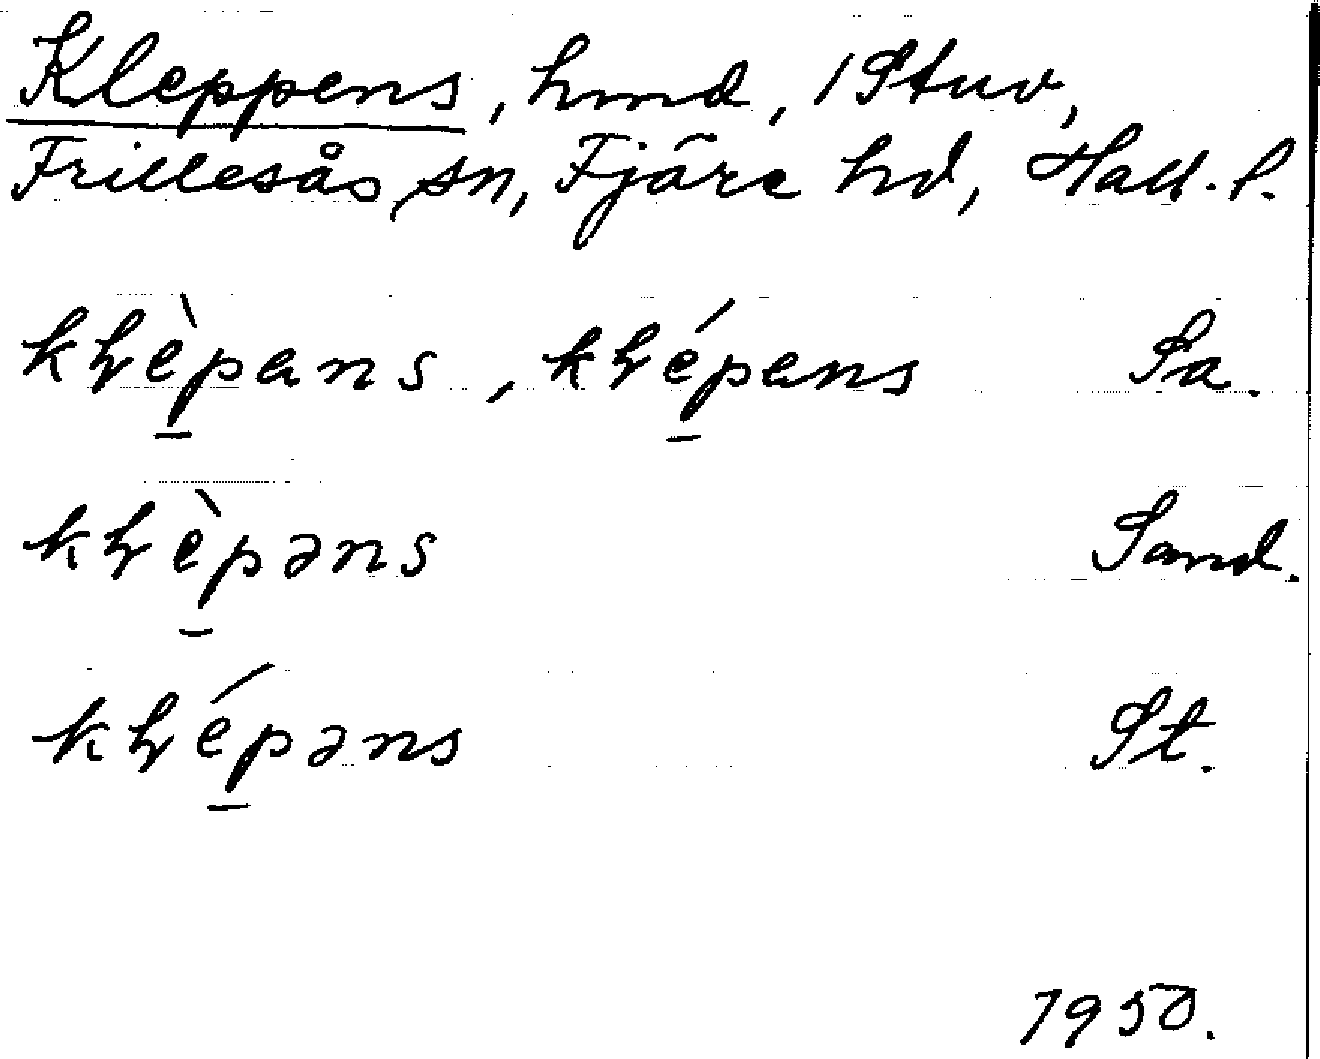 Kleppens, hmd, 1 Stuv,
Frillesås sn, Fjäre hd, Hall. l.
kɫèp̲ans, kɫép̲ans Sa.
kɫèp̲əns Sand.
kɫép̲əns St.
1950.